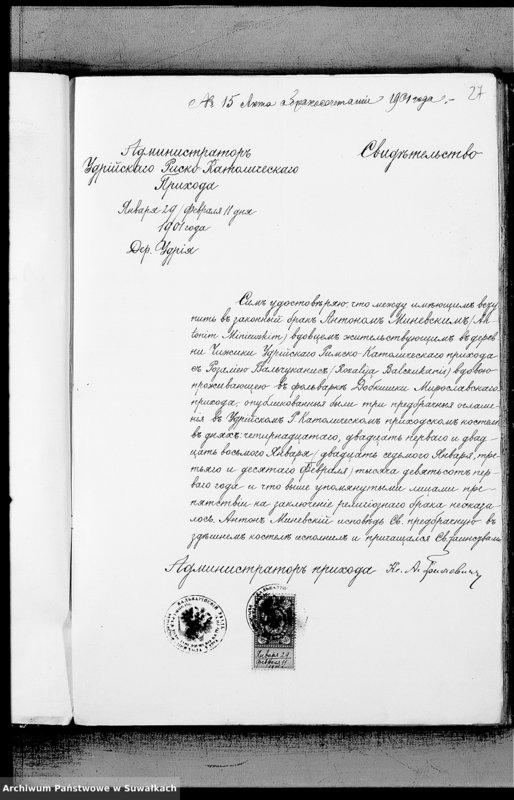 № 15 Акта бракосочетанія 1901 года.-
27
Администраторъ
Удрійскаго Риско-Католическаго
Прихода
Января 29/Февраля 11 дня
1901 года
Дер. Удрія
Свидѣтельство
Симъ удостовѣряю, что между имѣющимъ всту-
пить въ законный бракъ Антономъ Миневскимъ (An-
tonim Miniewskim) вдовцемъ жительствующимъ въ дерев-
ни Чижики Удрійскаго Римско-Католическаго прихода
съ Розаліею Вальчуканисъ (Rozalija Balczukanis) вдовою
проживающею въ фольваркѣ Довкишки Мирославскаго
прихода, опубликованныя были три предбрачныя оглаше-
нія въ Удрійскомъ Р. Католическомъ приходскомъ костелѣ
въ дняхъ: четырнадцатаго, двадцать перваго и двад-
цать восьмого Января (двадцать седьмого Января, тре-
тьяго и десятаго Февраля) тысяча девятьсотъ пер-
ваго года и что выше упомянутыми лицами пре-
пятствій на заключеніе религіознаго брака неоказа-
лось. Антонъ Миневскій исповѣдь Св. предбрачную въ
здѣшнемъ костелѣ исполнилъ и причащался Св.
Администраторъ прихода Кс. А.
Января 29
Февраля 11
Archiwum Państwowe w Suwałkach